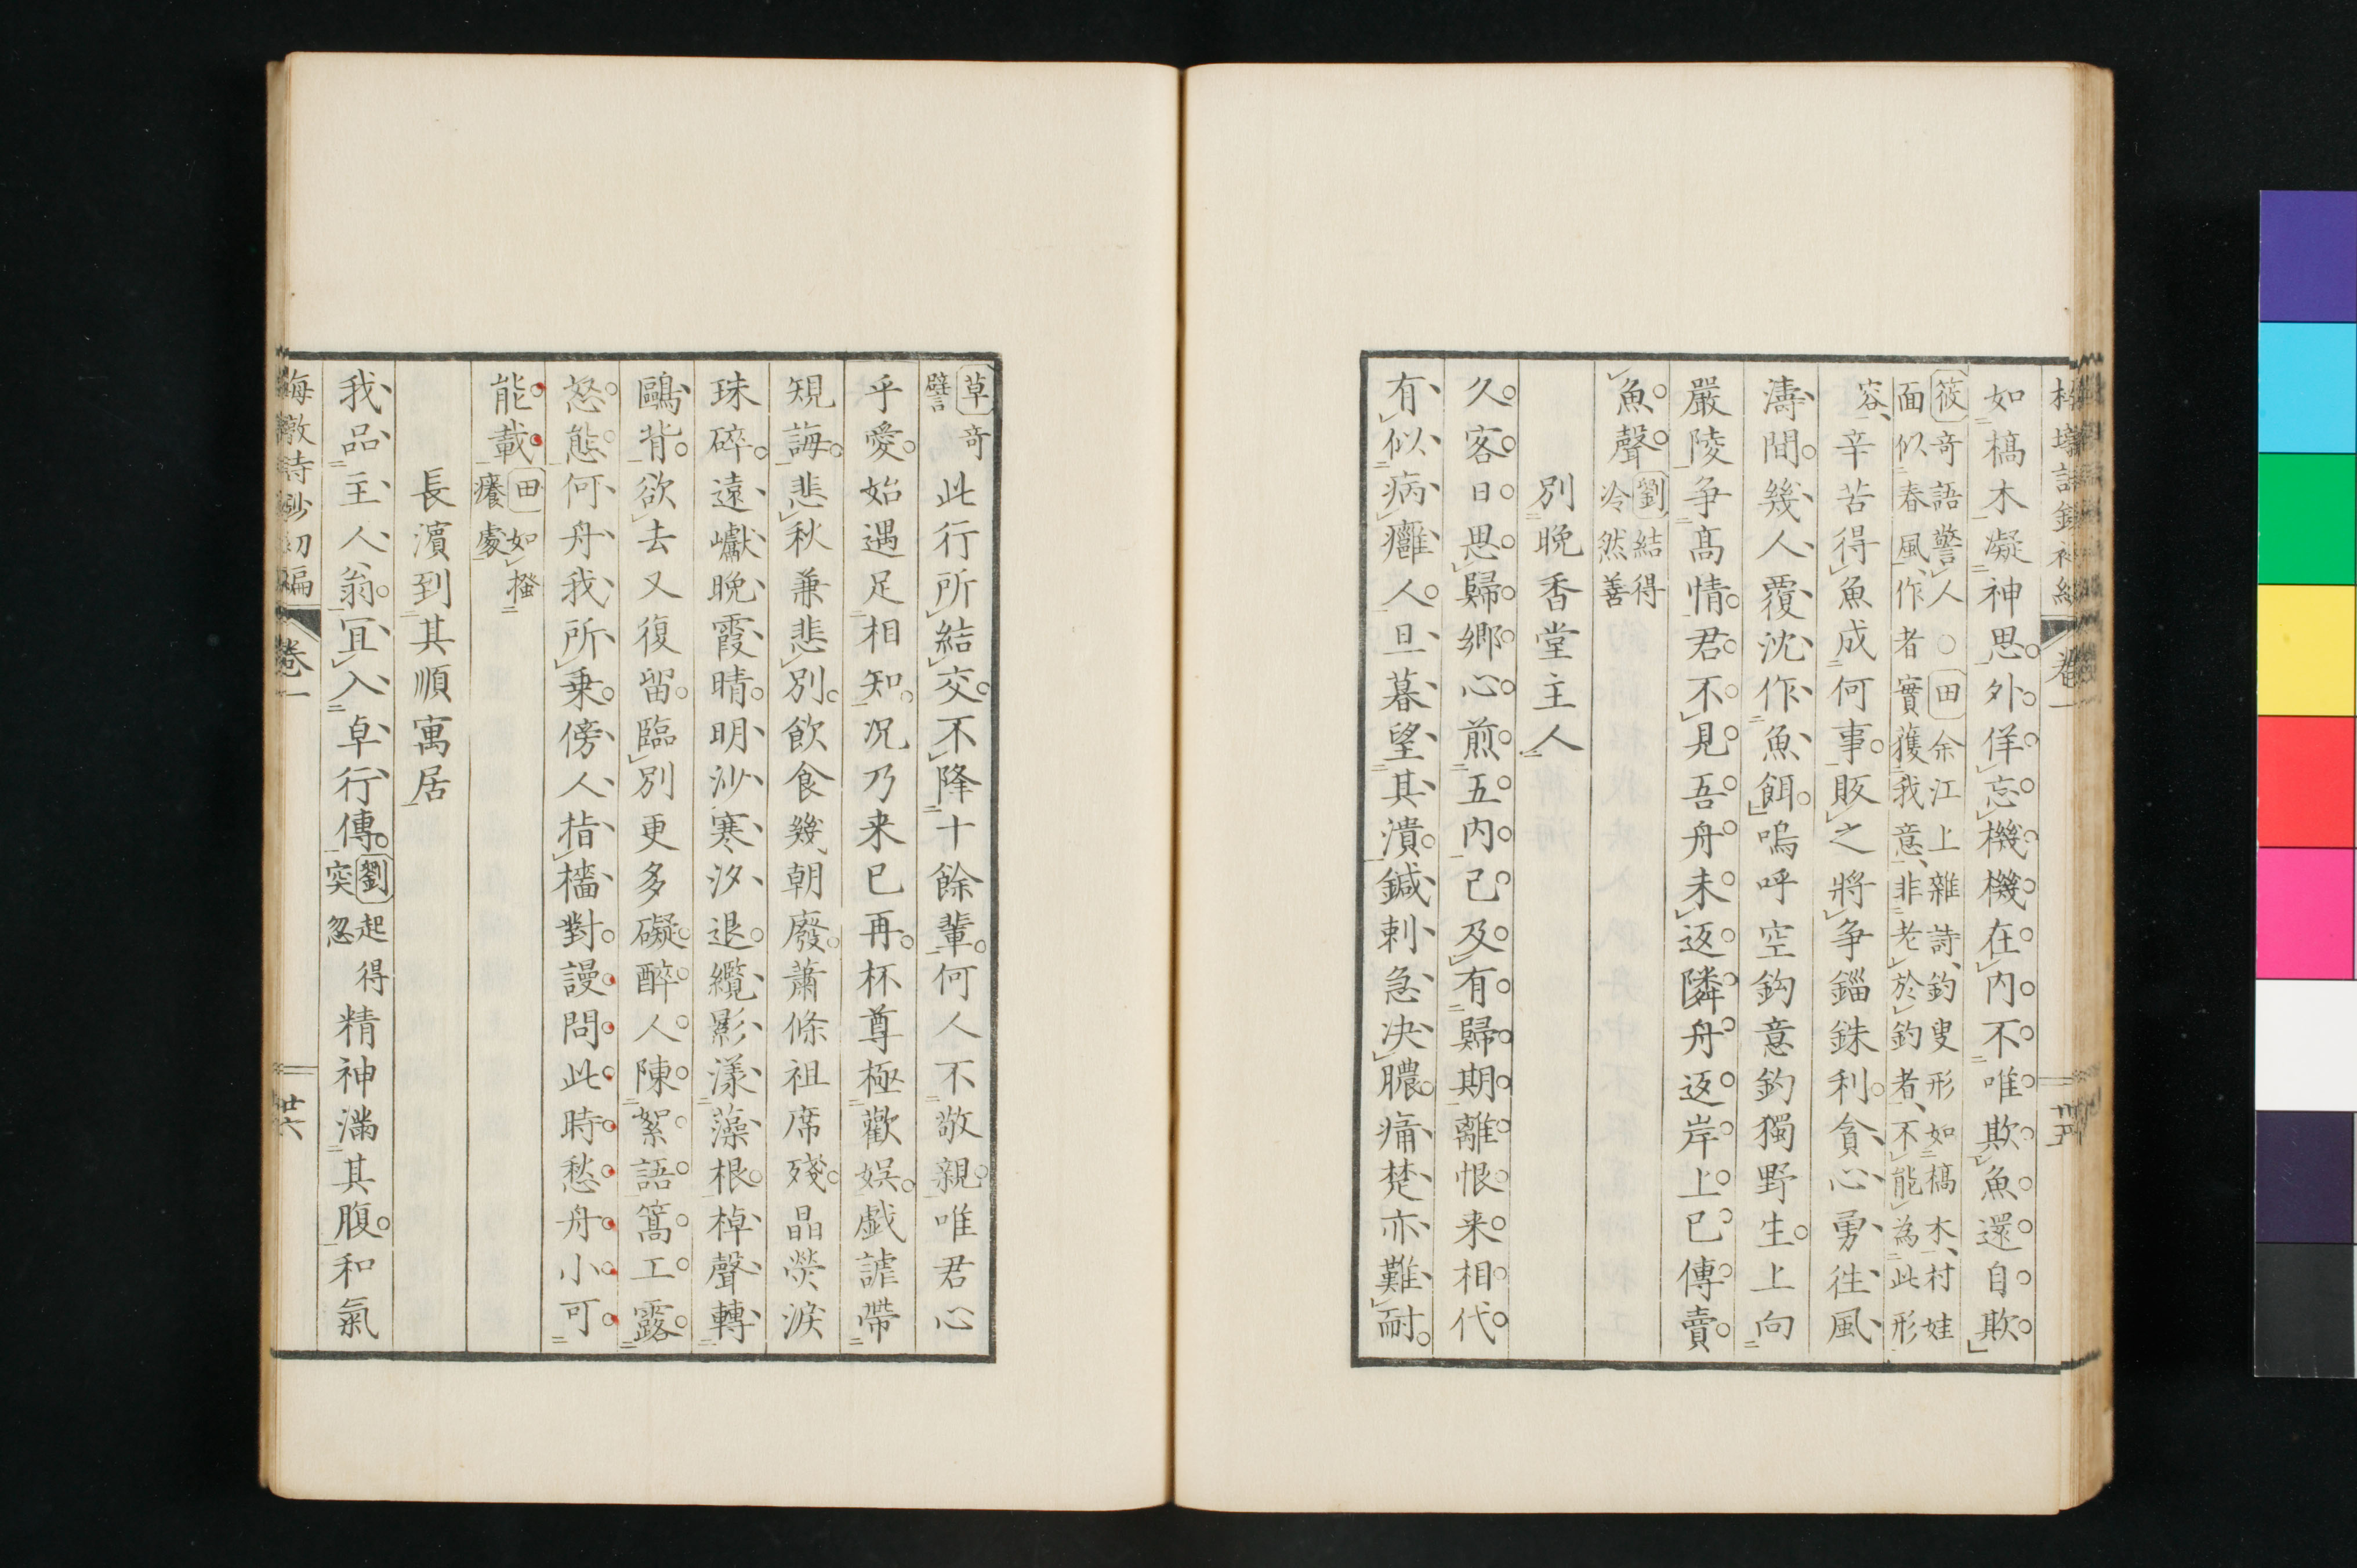 如槁木凝神思外佯忘機機在内不唯欺魚還自欺
筱奇語警人○田余江上雜詩釣叟形如槁木村娃
面似春風作者實獲我意非老於釣者不能為此形
容辛苦得魚成何事販之將争錙銖利貪心勇往風
濤間幾人覆沈作魚餌嗚呼空鈎意釣獨野生上向
嚴陵争髙情君不見吾舟未返隣舟返岸上已傳賣
魚聲劉結得冷然善
別晩香堂主人
久客日思歸郷心煎五内已及有歸期離恨来相代
有似病癰人旦暮望其潰鍼刺急決膿痛楚亦難耐
草奇譬此行所結交不降十餘輩何人不敬親唯君心
乎愛始遇足相知况乃来已再杯尊極歡娯戯謔帶
規誨悲秋兼悲別飲食幾朝廢蕭條祖席殘晶熒淚
珠碎遠巘晩霞晴明沙寒汐退纜影漾藻根棹聲轉
鷗背欲去又復留臨別更多礙醉人陳絮語篙工露
怒態何舟我所乗傍人指檣對謾問此時愁舟小可
能載田如掻癢處
長濵到其順寓居
我品主人翁冝入卓行傳劉起得突忽精神滿其腹和氣
卷一
廿六